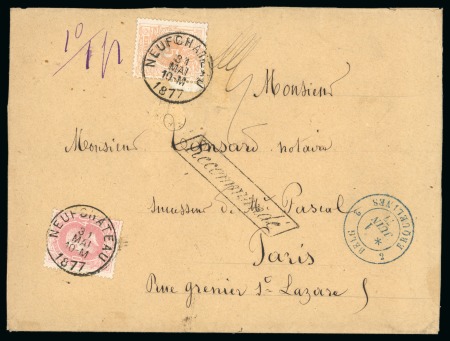 10
NEUFCHATEAU
31
MAI
10-M
1877
Monsieur
Monsieur Ponsard notaire
Recommandé
successeur de Mr Pascal
Paris
Rue grenier St Lazare 5
NEUFCHATEAU
31
MAI
10-M
1877
2 BELG. A ERQUELINES 2
1
JUIN
77